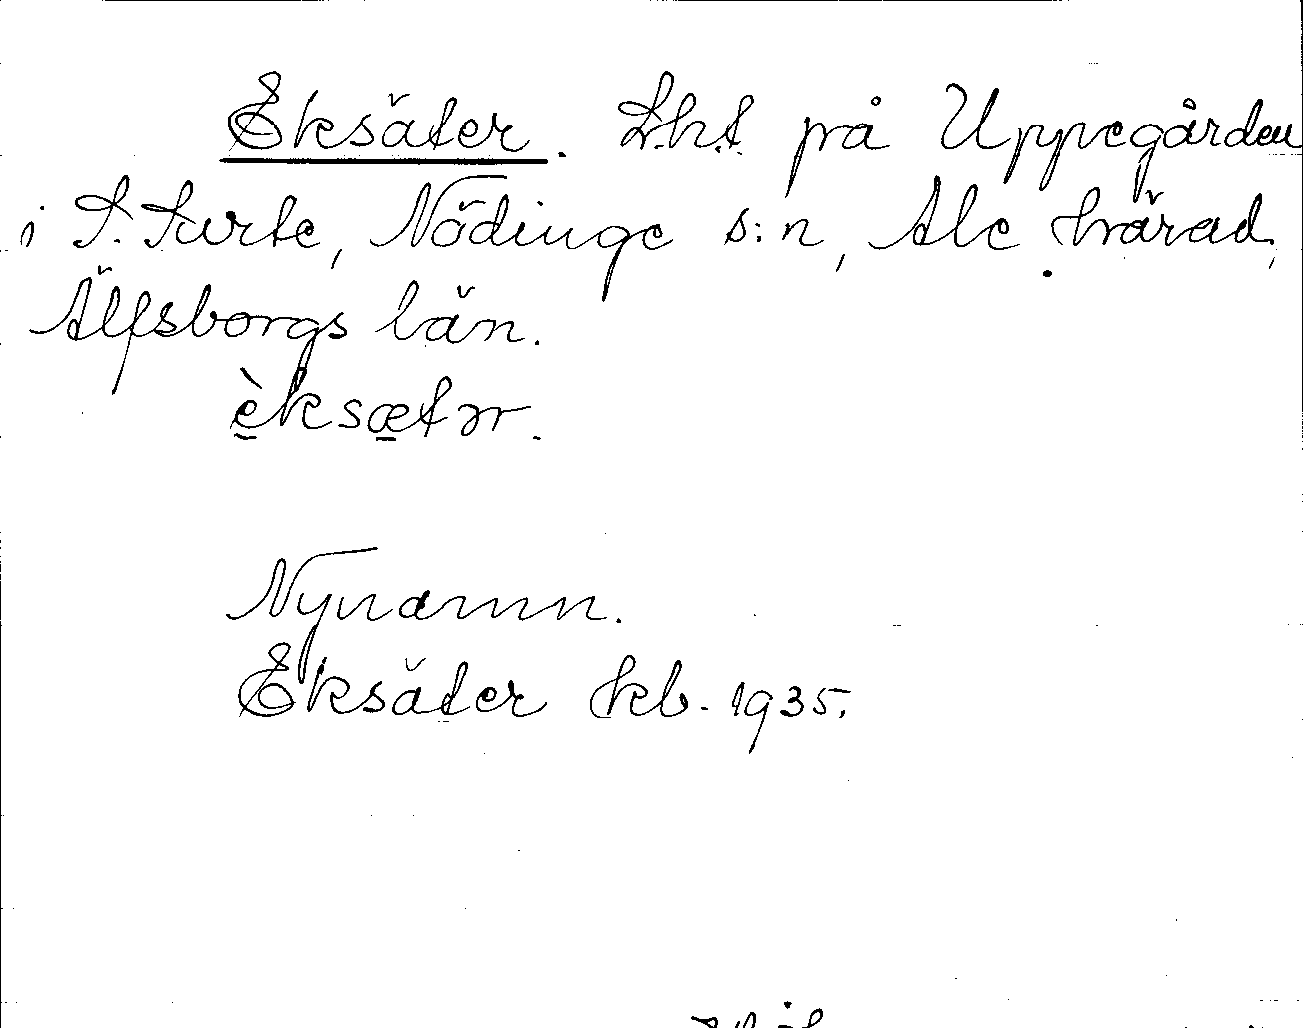 Eksäter. Lht på Uppegården
i S. Surte, Nödinge s:n, Ale härad,
Älfsborgs län.
èksætər.
Nynamn.
Eksäter kb. 1935.